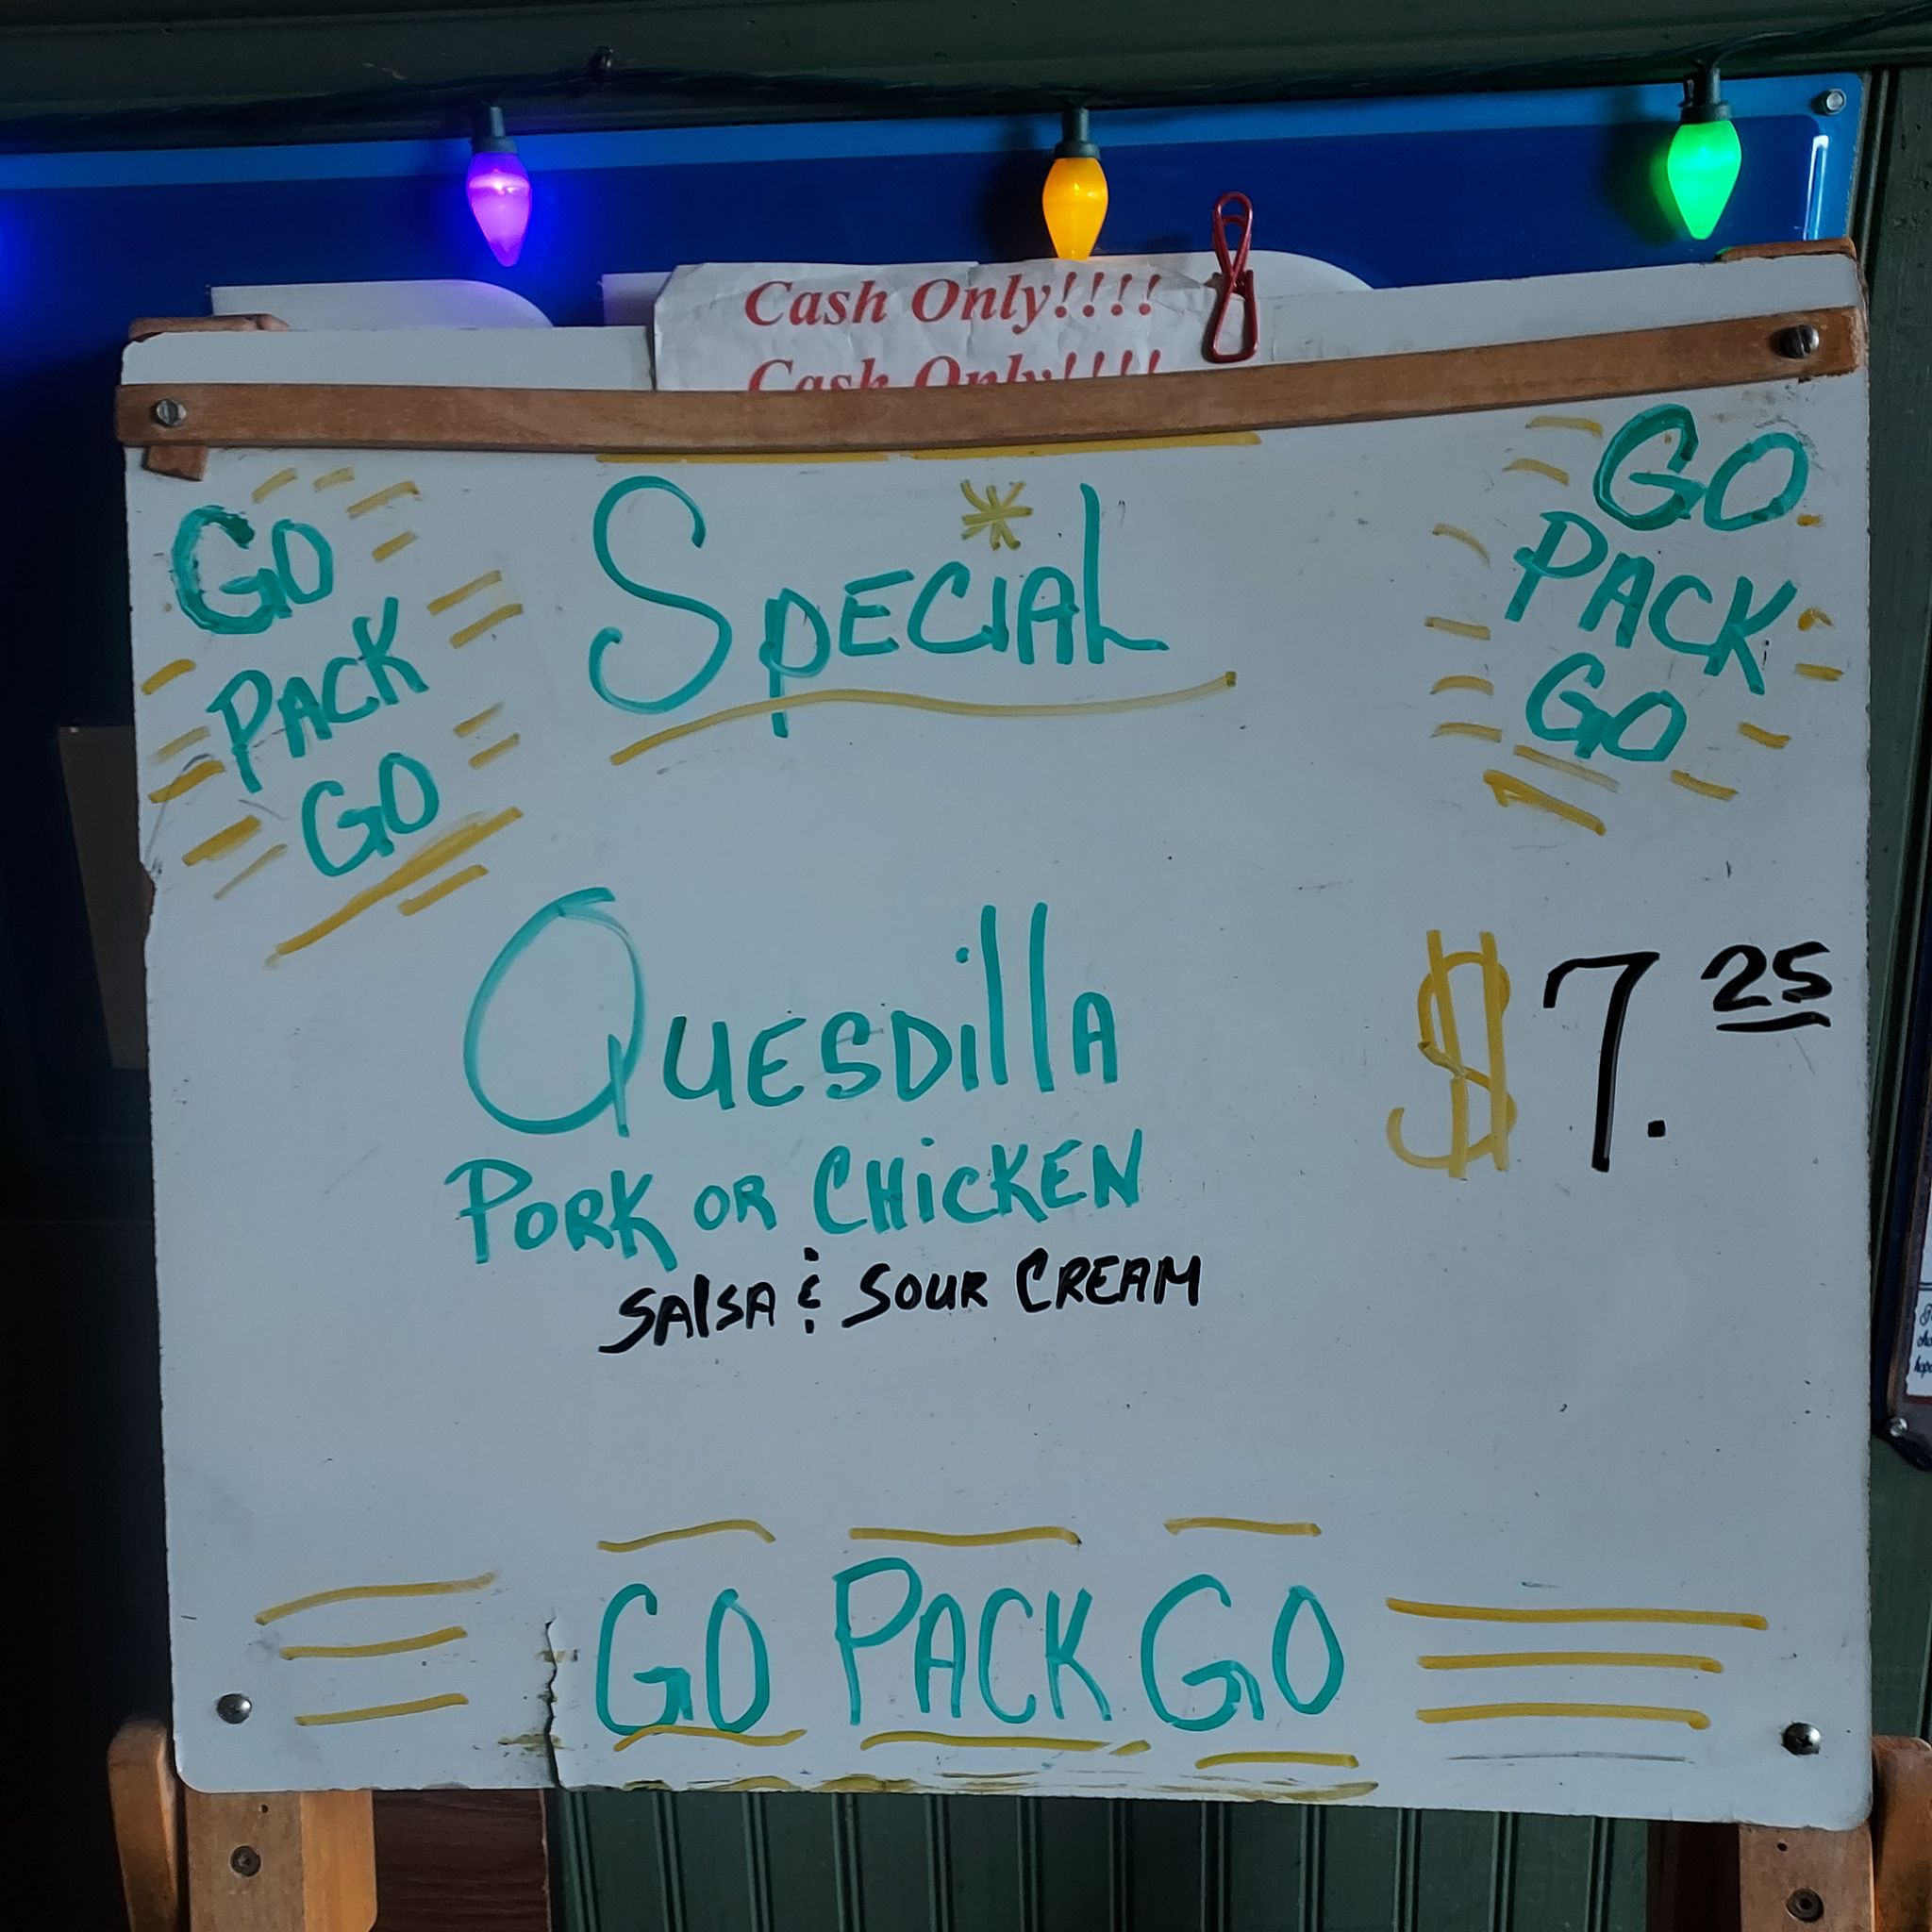 Cash Only!!!!
Cash Only!!!!
GO
PACK
GO
SPECIAL
GO
PACK
GO
QUESDillA
$7.25
PORK OR CHiCKEN
SAlSA & SOUR CREAM
GO PACK GO